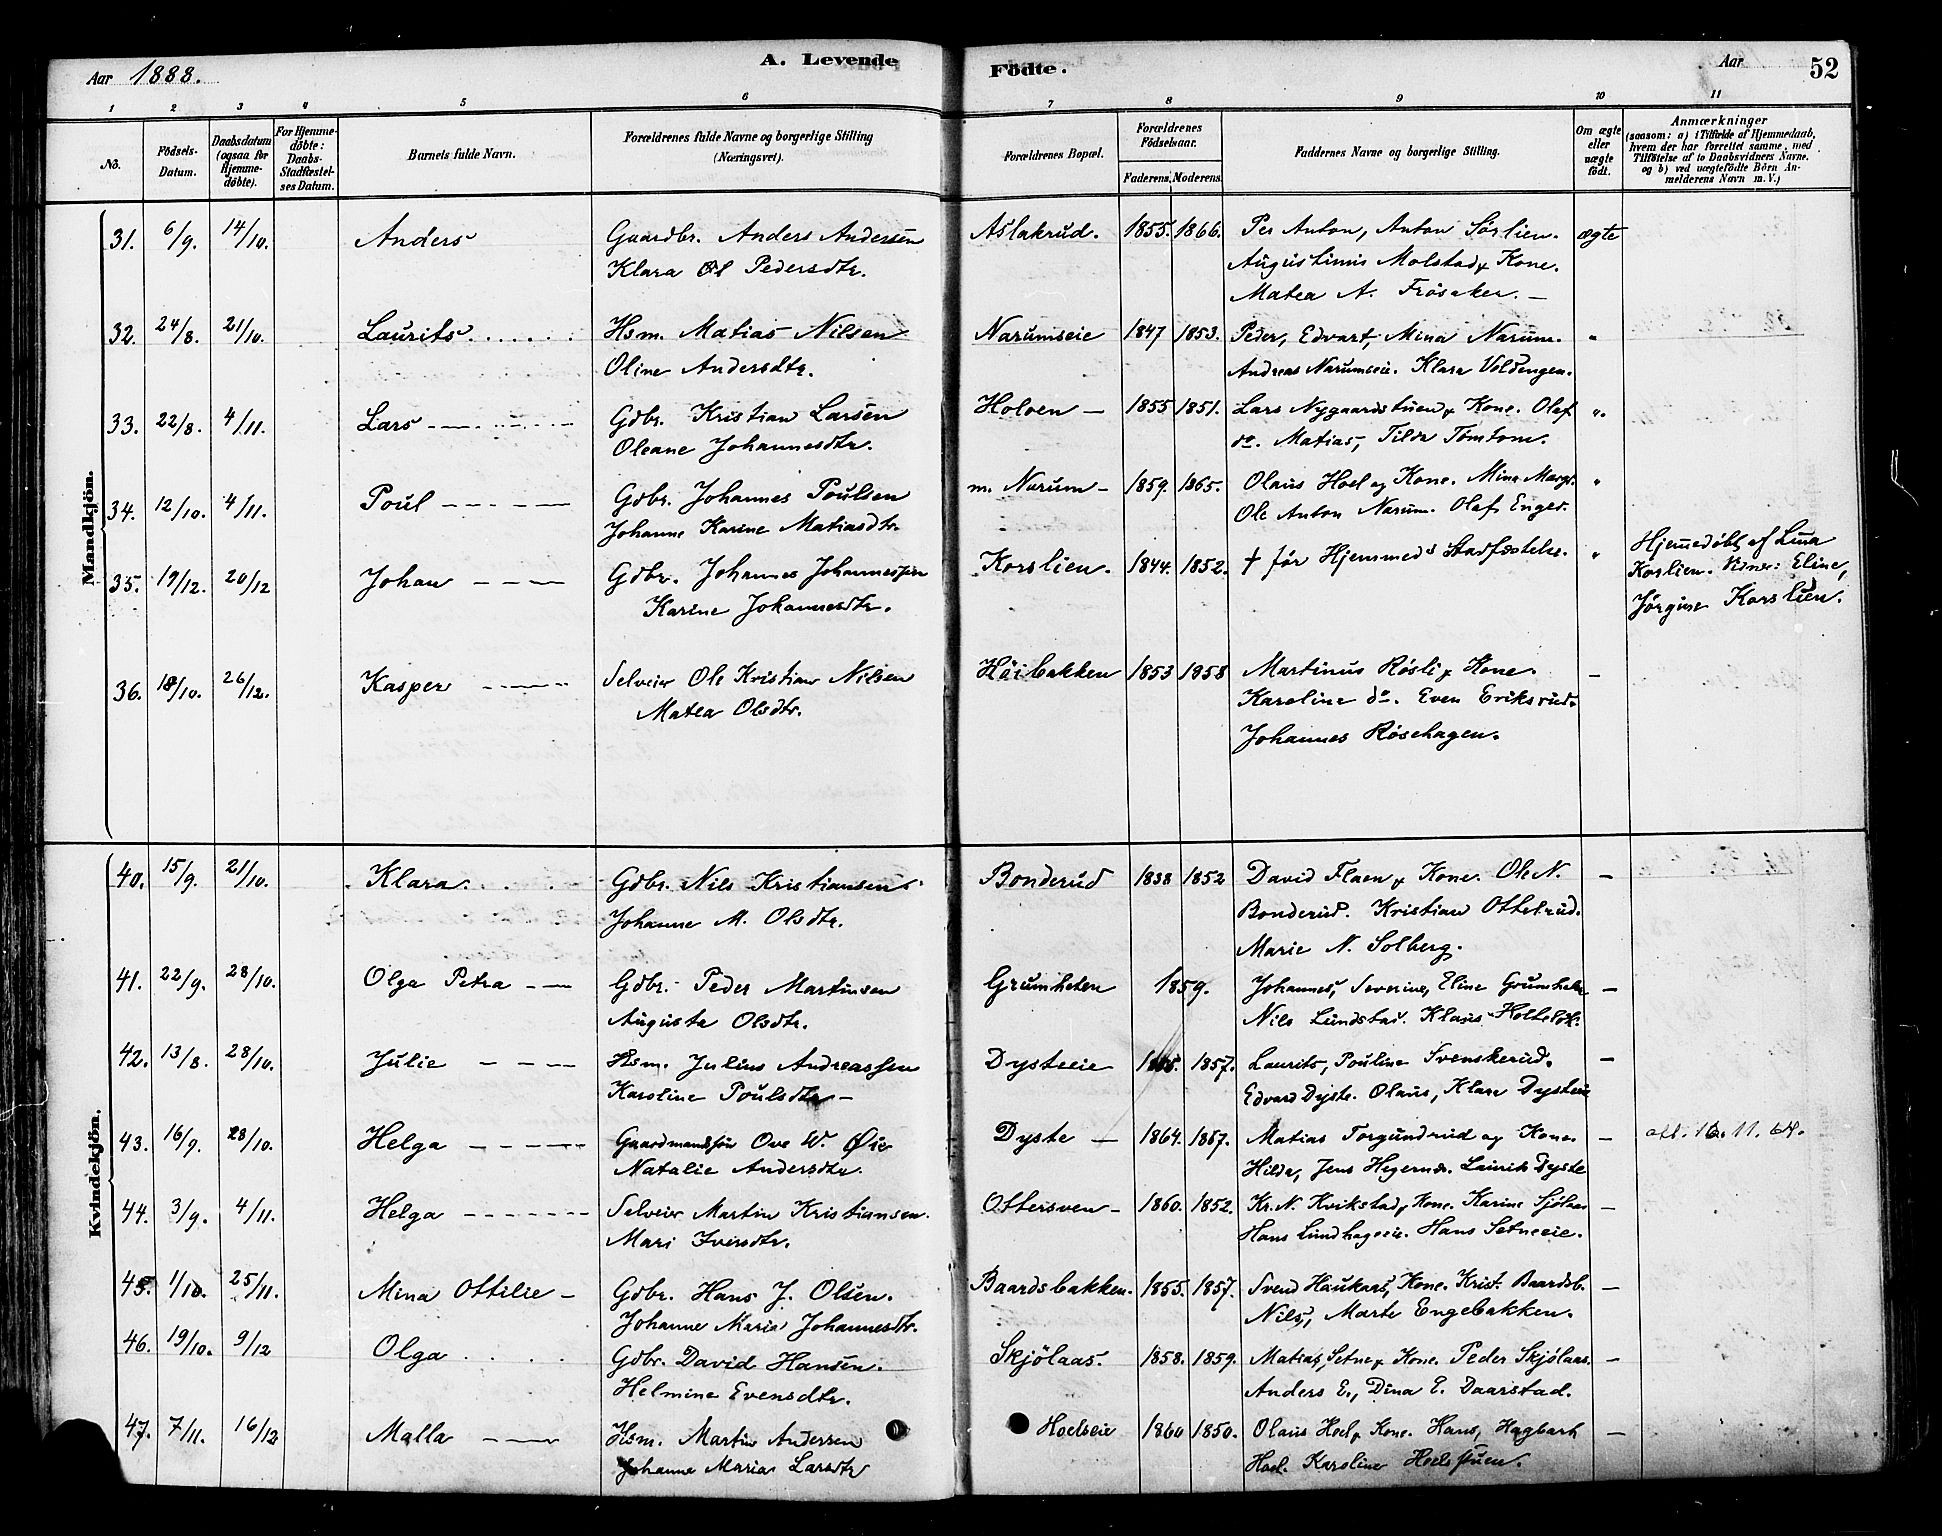 Aar 1888.
A. Levende
Födte.
Aar
52
1 2 3 4 5 6 7 8 9 10 11
No.
Födsels-Datum.
Daabsdatum (ogsaa for Hjemmedöbte).
For Hjemmedöbte: Daabs-Stadfæstelses Datum.
Barnets fulde Navn.
Forældrenes fulde Navne og borgerlige Stilling (Næringsvei).
Forældrenes Bopæl.
Forældrenes Födselsaar.
Faderens. Moderens.
Faddernes Navne og borgerlige Stilling.
Om ægte eller uægte födt.
Anmærkninger
(saasom: a) i Tilfælde af Hjemmedaab, hvem der har forrettet samme, med Tilföielse af to Daabsvidners Navne. og b) ved uægtefödte Börn Anmelderens Navn m. V.)
Mandkjön.
31. 6/9. 14/10. Anders Gaardbr. Anders Andersen Aslakrud. 1855. 1866. Per Anton, Anton Sørlien. ægte
Klara Ol Pedersdtr. Augustinus Molstad & Kone.
Matea A. Frösaker. —
32. 24/8. 21/10. Laurits Hsm. Matias Nilsen Narumseie 1847 1853. Peder, Edvart, Mina Narum. "
Oline Andersdtr. Andreas Narumseie. Klara Voldengen.
33. 22/8. 4/11. Lars Gdbr. Kristian Larsen Holven — 1855 1851. Lars Nygaardstuen & Kone. Olaf "
Oleane Johannesdtr. do. Matias, Tilda Tømtom.
34. 12/10. 4/11. Poul Gdbr. Johannes Poulsen m. Narum — 1859. 1865. Olaus Hoel og Kone. Mina Margr. "
Johanne Karine Matiasdtr. Ole Anton Narum. Olaf Enger.
35. 19/12. 20/12 Johan Gdbr. Johannes Johannessen Korslien. 1844. 1852. † før Hjemmeds Stadfæstelse. " Hjemmedøbt af Lina
Karine Johannesdtr. Korslien. Vidner: Eline,
Jørgine Korslien.
36. 18/10. 26/12. Kasper Selveier Ole Kristian Nilsen Höibakken 1853 1858 Martinus Røsli & Kone. —
Matea Olsdtr. Karoline do. Even Eriksrud.
Johannes Røsehagen.
Kvindekjön.
40. 15/9. 21/10. Klara Gdbr. Nils Kristiansen Bonderud 1838 1852 David Flaen & Kone. Ole N. —
Johanne M. Olsdtr. Bonderud. Kristian Ottelrud.
Marie N. Solberg.
41. 22/9. 28/10. Olga Petra Gdbr. Peder Martinsen Grumheten 1859. Johannes, Severine, Eline Grumheten —
Augusta Olsdtr. Nils Lundstad. Klaus
42. 13/8. 28/10. Julie Hsm. Julius Andreassen Dysteeie 1857. Laurits, Pouline Svenskerud. —
Karoline Poulsdtr — Edvard Dyste. Olaus, Klara Dysteeie
43. 16/9. 28/10. Helga Gaardmandssön Ove W. Dyste — 1864. 1857. Matias Torgundrud og Kone. — 16. 11. 64.
Natalie Andersdtr. Hilda, Jens Hegernæs. Laurits Dyste
44. 3/9. 4/11. Helga Selveier Martin Kristiansen. Ottersven — 1860. 1852. Kr. N. Kvikstad, Kone. Karine Sjölaas —
Mari Iversdtr. Hans Lundhageeie. Hans Setneeie.
45. 1/10. 25/11. Mina Ottilie — Gdbr. Hans J. Olsen. Baardsbakken. 1855. 1857. Svend Haukaas, Kone. Krist. Baardsb. —
Johanne Maria Johannesdtr. Nils, Marte Engebakken.
46. 19/10. 9/12 Olga Gdbr. David Hansen. Skjölaas. 1858. 1859. Matias Setne & Kone. Peder Skjölaas. —
Helmine Evensdtr. Anders E., Dina E. Daarstad.
47. 7/11. 16/12 Malla Hsm. Martin Andersen Hoelseie 1860 1850. Olaus Hoel & Kone. Hans, Hagbart —
Johanne Maria Larsdtr Hoel. Karoline Hoelstuen.